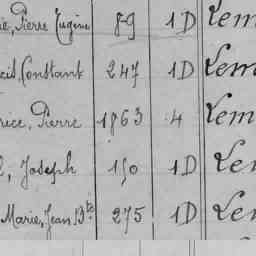 ie, Pierre Eugène 89 1D Lem
cis, Constant 247 1D Lem
rice, Pierre 1863 4 Lem
l, Joseph 150 1D Lem
Marie, Jean Bte 275 1D Lem